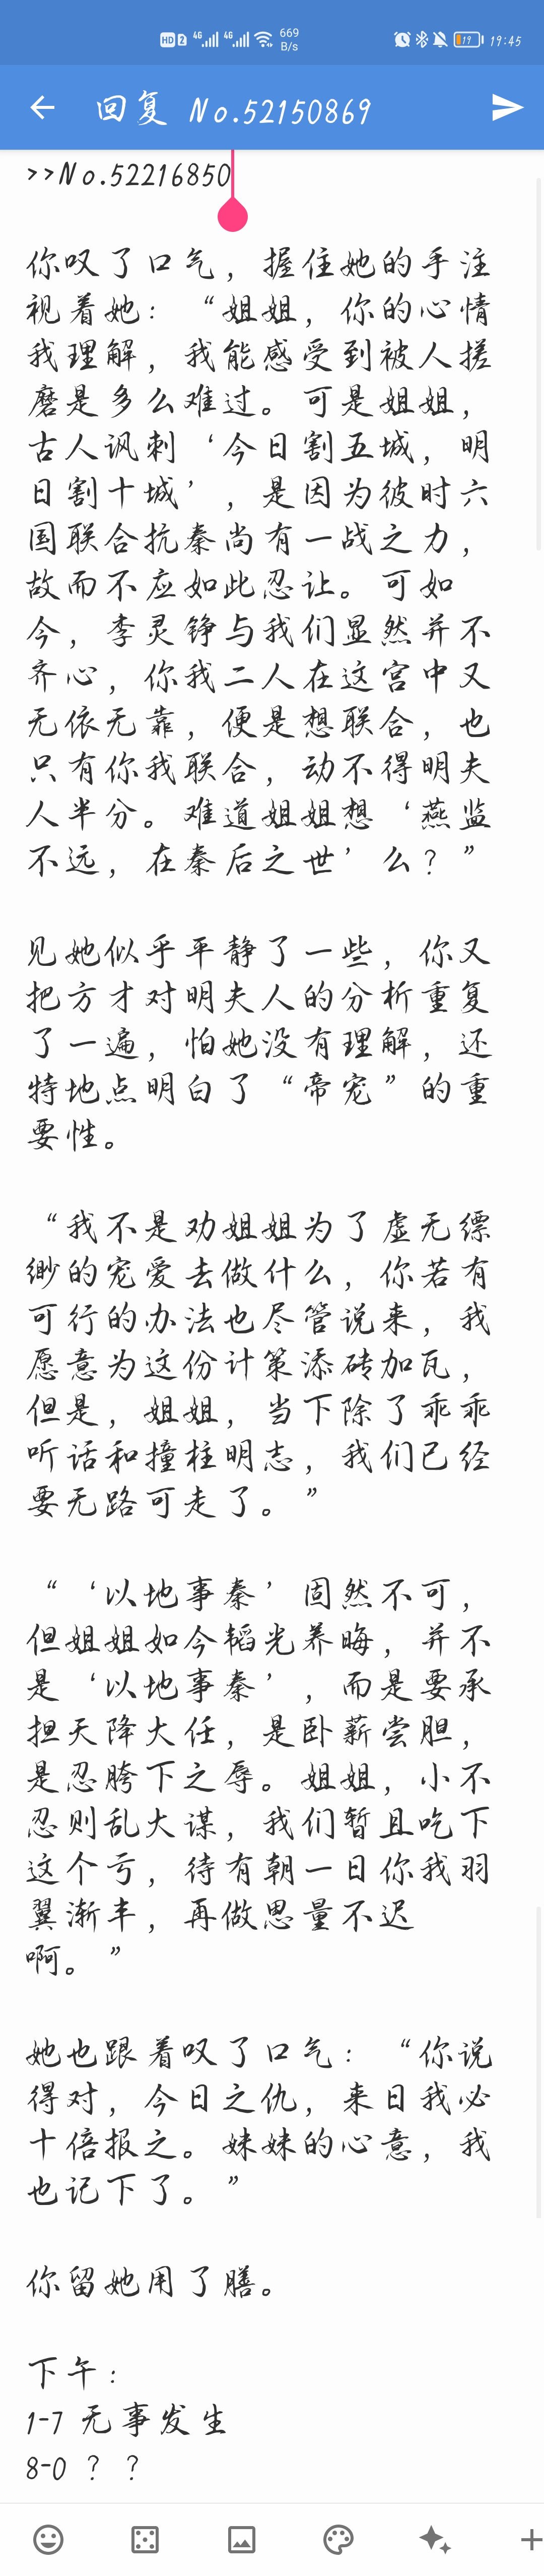 HD 2 4G 4G 669 B/s 19 19:45
回复 No.52150869
>>No.52216850
你叹了口气，握住她的手注
视着她：“姐姐，你的心情
我理解，我能感受到被人搓
磨是多么难过。可是姐姐，
古人讽刺‘今日割五城，明
日割十城’，是因为彼时六
国联合抗秦尚有一战之力，
故而不应如此忍让。可如
今，李灵铮与我们显然并不
齐心，你我二人在这宫中又
无依无靠，便是想联合，也
只有你我联合，动不得明夫
人半分。难道姐姐想‘燕监
不远，在秦后之世’么？”
见她似乎平静了一些，你又
把方才对明夫人的分析重复
了一遍，怕她没有理解，还
特地点明白了“帝宠”的重
要性。
“我不是劝姐姐为了虚无缥
缈的宠爱去做什么，你若有
可行的办法也尽管说来，我
愿意为这份计策添砖加瓦，
但是，姐姐，当下除了乖乖
听话和撞柱明志，我们已经
要无路可走了。”
“‘以地事秦’固然不可，
但姐姐如今韬光养晦，并不
是‘以地事秦’，而是要承
担天降大任，是卧薪尝胆，
是忍胯下之辱。姐姐，小不
忍则乱大谋，我们暂且吃下
这个亏，待有朝一日你我羽
翼渐丰，再做思量不迟
啊。”
她也跟着叹了口气：“你说
得对，今日之仇，来日我必
十倍报之。妹妹的心意，我
也记下了。”
你留她用了膳。
下午：
1-7 无事发生
8-0 ？？